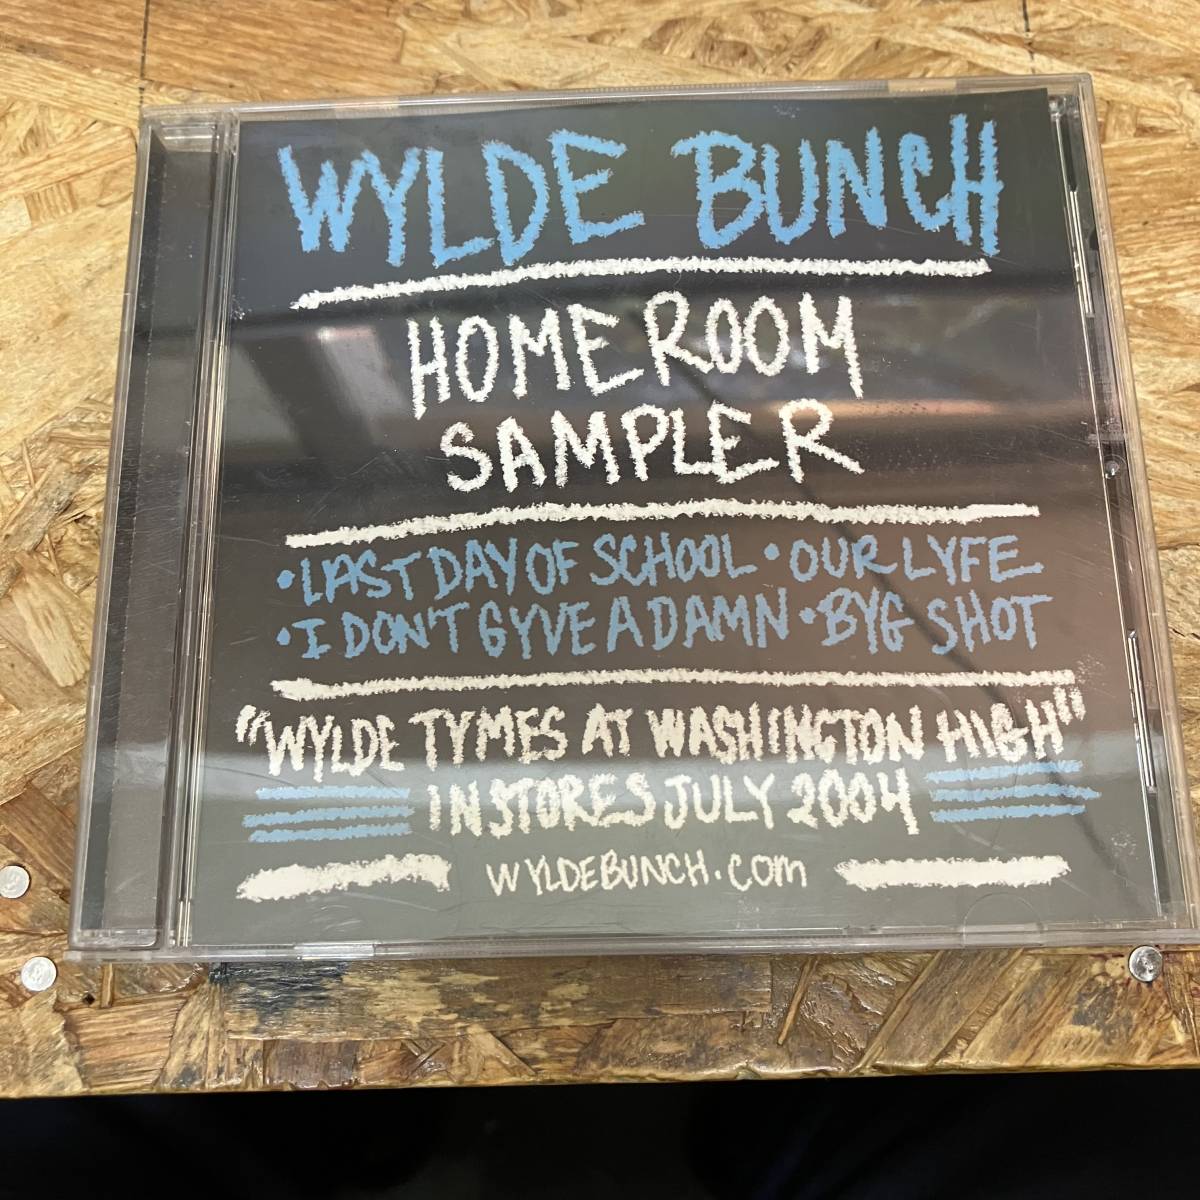 WYLDE BUNCH
HOMEROOM
SAMPLER
•LAST DAY OF SCHOOL •OUR LYFE
•I DON'T GYVE A DAMN •BYG SHOT
"WYLDE TYMES AT WASHINGTON HIGH"
IN STORES JULY 2004
WYLDEBUNCH.COM